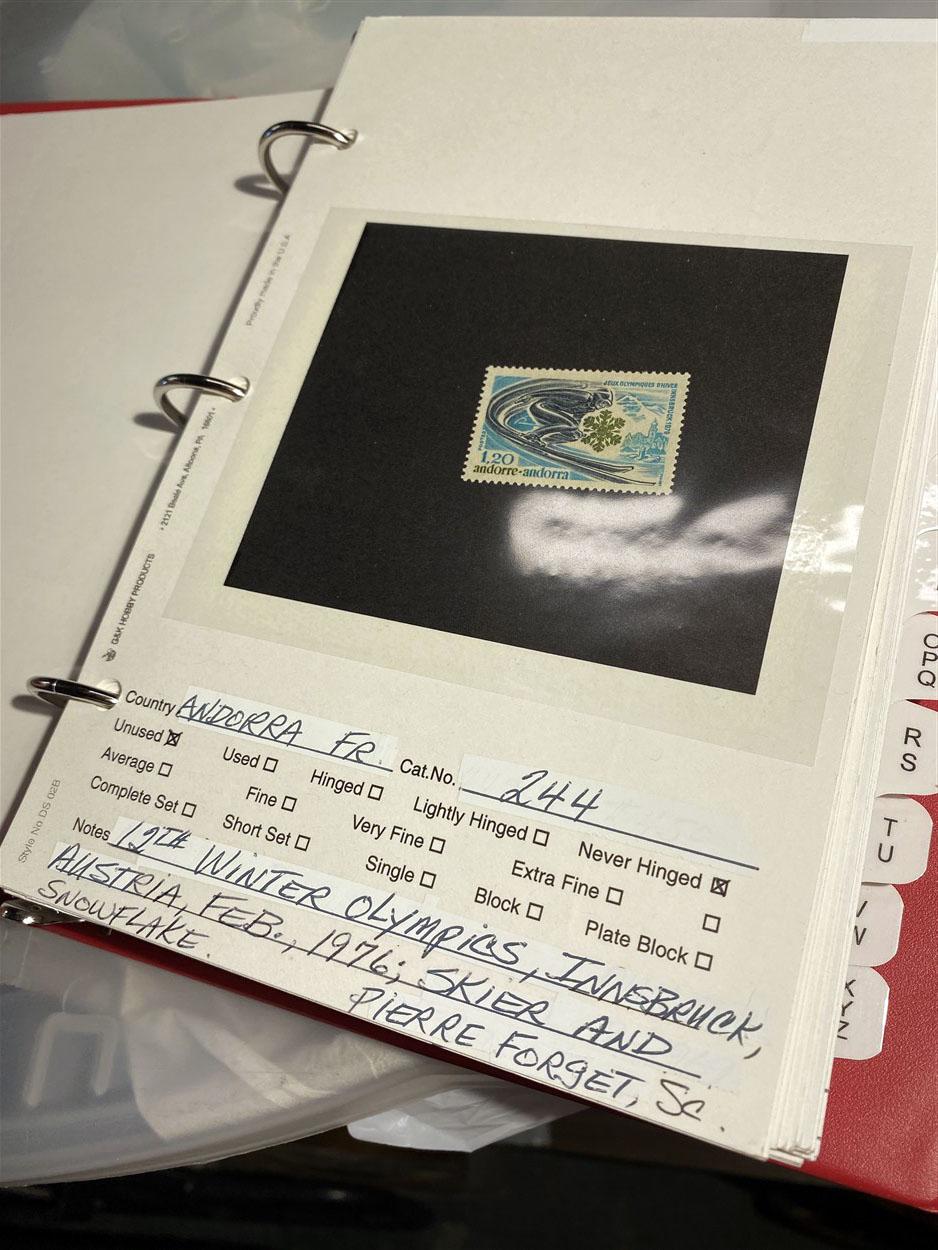 Proudly made in the U.S.A
• 2121 Beale Ave, Altoona, PA 16601 •
G&K HOBBY PRODUCTS
Style No DS 02B
JEUX OLYMPIQUES D'HIVER
INNSBRUCK 1976
POSTES
1,20
andorre-andorra
Country ANDORRA FR. Cat.No. 244
Unused ☒ Used ☐ Hinged ☐ Lightly Hinged ☐ Never Hinged ☒
Average ☐ Fine ☐ Very Fine ☐ Extra Fine ☐ ☐
Complete Set ☐ Short Set ☐ Single ☐ Block ☐ Plate Block ☐
Notes 12TH WINTER OLYMPICS, INNSBRUCK,
AUSTRIA, FEB., 1976; SKIER AND
SNOWFLAKE. PIERRE FORGET, Sc.
O
P
Q
R
S
T
U
X
Y
Z